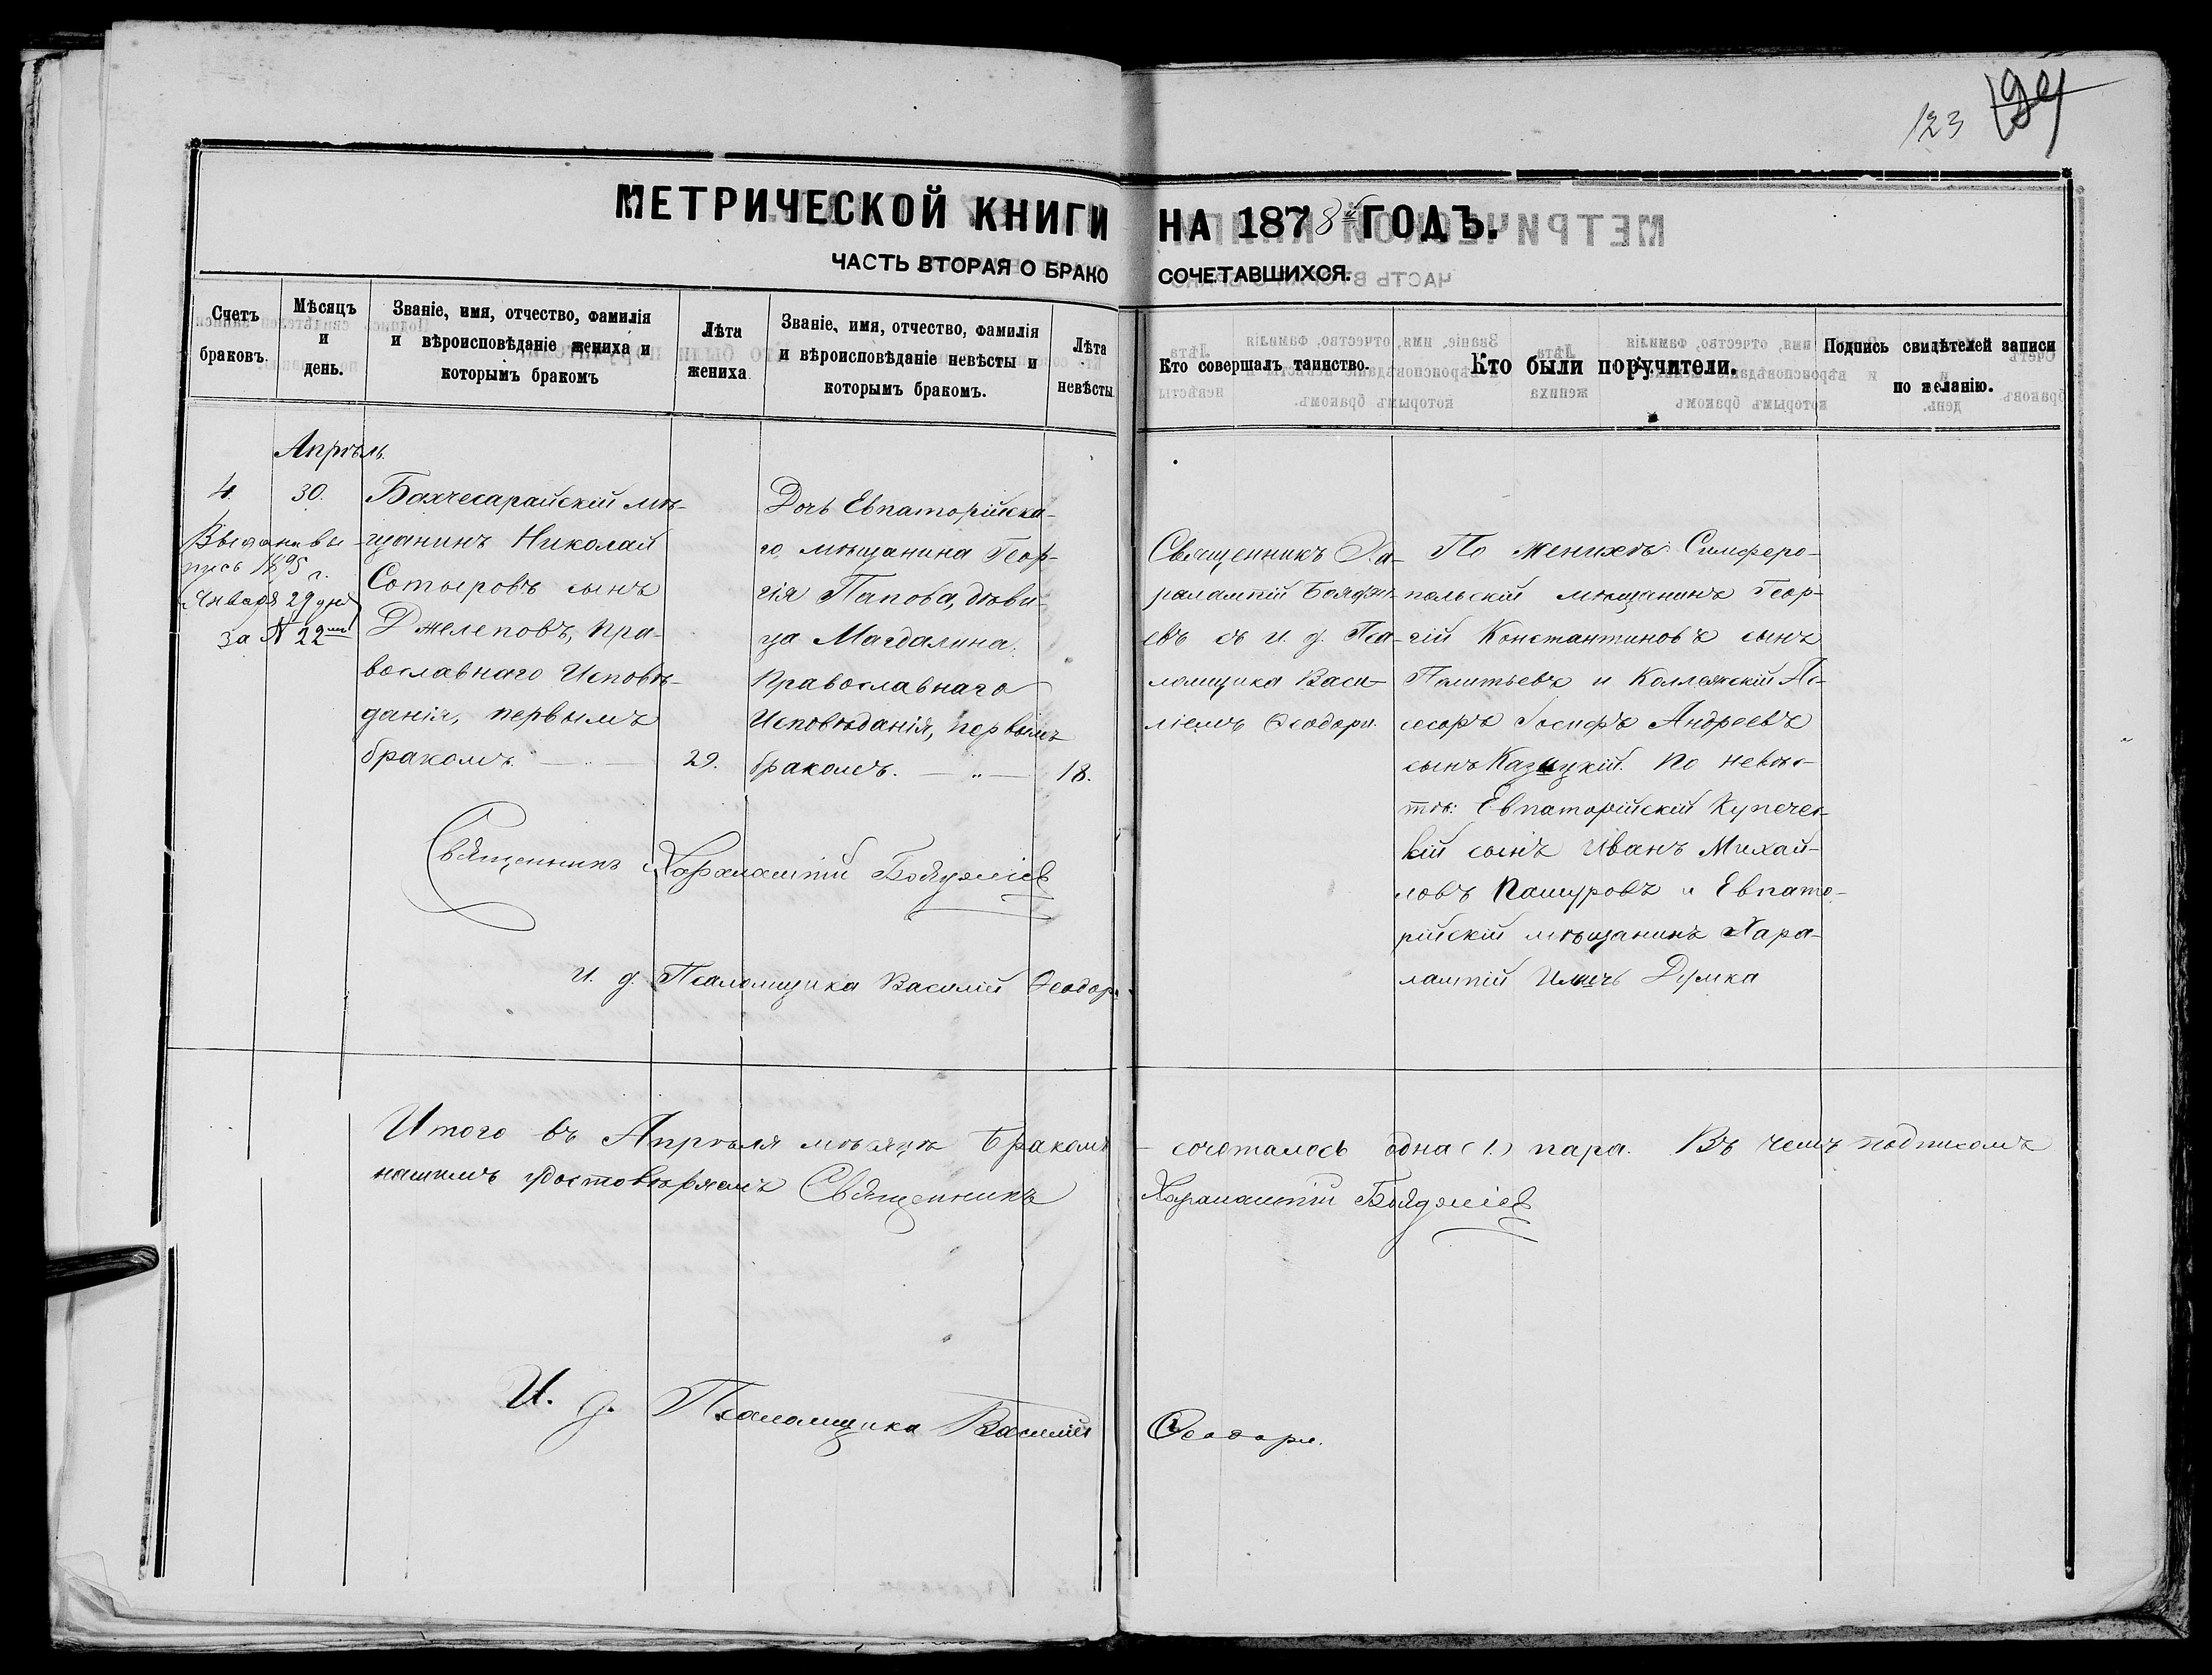 123
МЕТРИЧЕСКОЙ КНИГИ НА 1878й ГОДЪ.
ЧАСТЬ ВТОРАЯ О БРАКОСОЧЕТАВШИХСЯ.
Счетъ браковъ.
Мѣсяцъ и день.
Званіе, имя, отчество, фамилія
и вѣроисповѣданіе жениха и
которымъ бракомъ
Лѣта жениха
Званіе, имя, отчество, фамилія
и вѣроисповѣданіе невѣсты и
которымъ бракомъ.
Лѣта невѣсты
Кто совершалъ таинство.
Кто были поручители.
Подпись свидѣтелей записи
по желанію.
Апрѣль
4.
30.
Выдана вы-
пись 1895 г.
Января 29 дня
за № 22
Бахчесарайскій мѣ-
щанинъ Николай
Сотыровъ сынъ
Джелеповъ, пра-
вославнаго Исповѣ-
данія, первымъ
бракомъ.
29.
Дочь Евпаторійска-
го мѣщанина Геор-
гія Папова, дѣви-
ца Магдалина,
Православнаго
Исповѣданія, первымъ
бракомъ.
18.
Священникъ Ха-
ралампій
евъ съ и. д. Пса-
ломщика Васи-
ліемъ Ѳеодори.
По женихѣ: Симферо-
польскій мѣщанинъ Геор-
гій Константиновъ сынъ
и Коллежскій Ас-
сесоръ Іосифъ Андреевъ
сынъ Казицкій. По невѣс-
тѣ: Евпаторійскій Купечес-
кій сынъ Иванъ Михай-
ловъ и Евпато-
рійскій мѣщанинъ Хара-
лампій Ильичъ Думка
Священникъ Харалампій
И. д. Псаломщика Василій Ѳеодори
Итого въ Апрѣля мѣсяцѣ Бракомъ сочоталось одна (1) пара. Въ чемъ подписомъ
нашимъ удостовѣряемъ Священникъ Харалампій
И. д. Псаломщика Василій Ѳеодори.